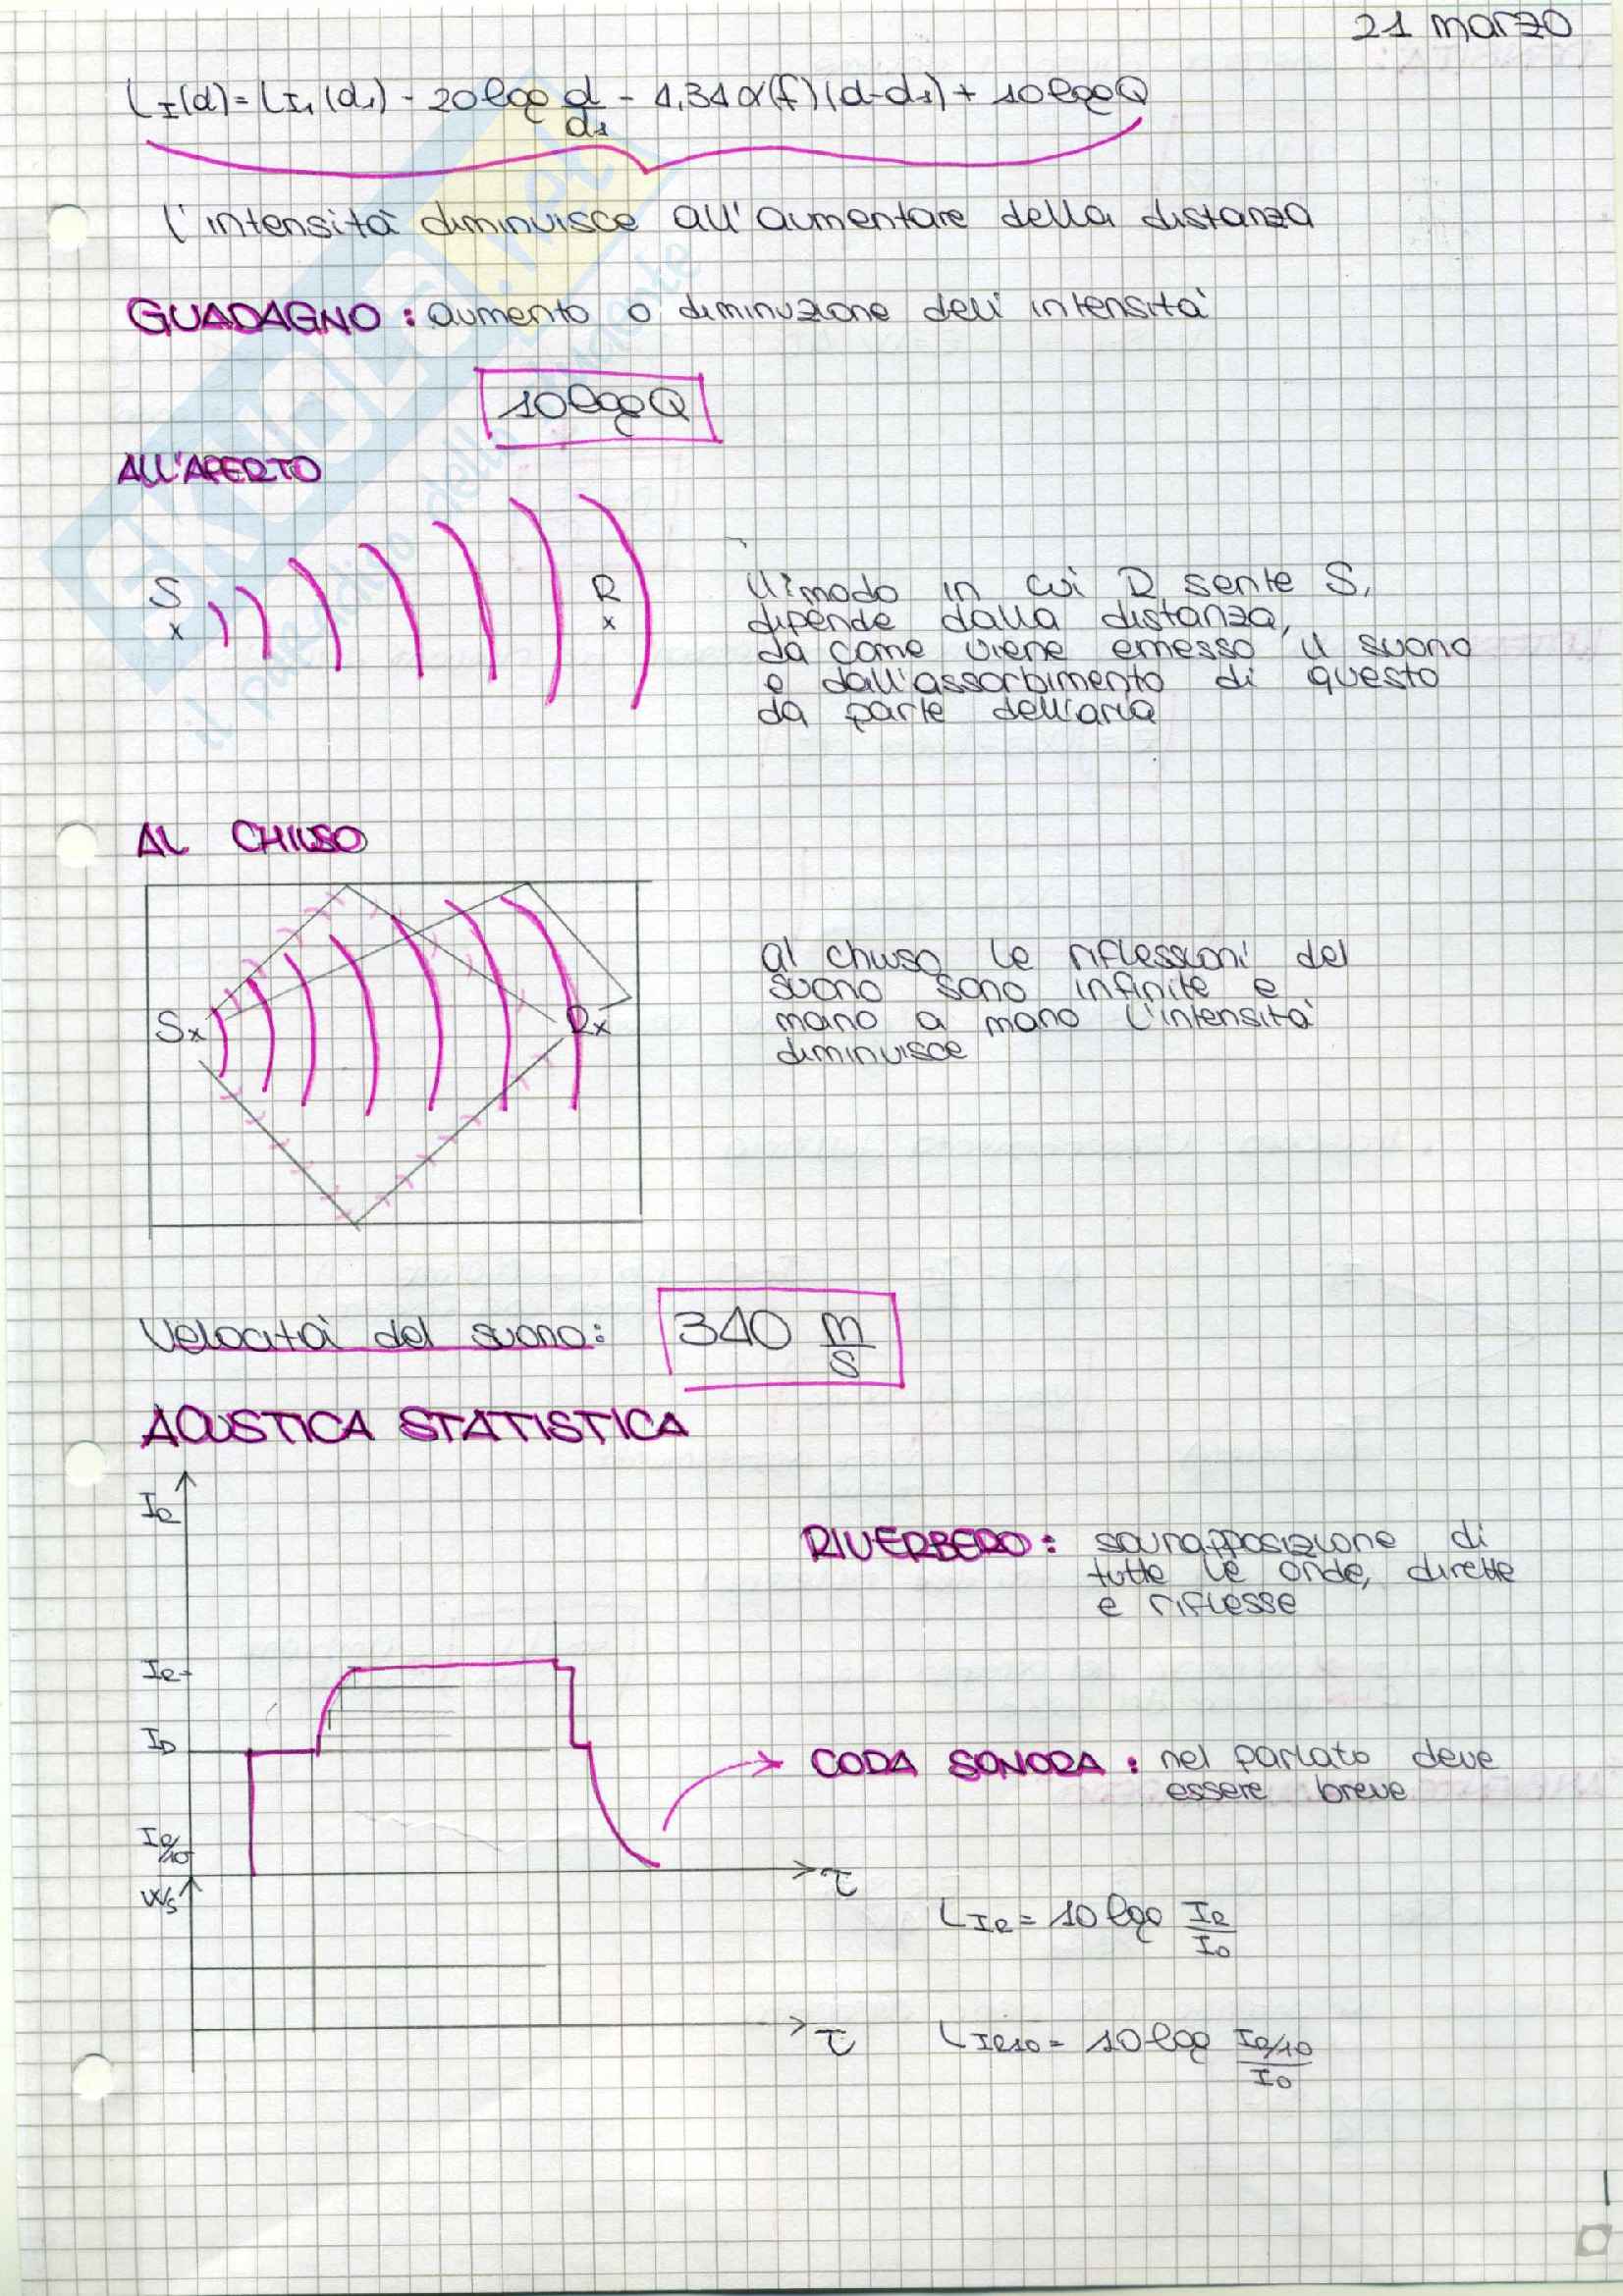 21 marzo
L_I(d) = L_I1(d1) - 20 log d/d1 - 4,34 α(f)(d-d1) + 10 log Q
l'intensità diminuisce all'aumentare della distanza
GUADAGNO : aumento o diminuzione dell'intensità
10 log Q
ALL'APERTO
S
x
R
x
Il modo in cui R sente S,
dipende dalla distanza,
da come viene emesso il suono
e dall'assorbimento di questo
da parte dell'aria
AL CHIUSO
Sx
Rx
al chiuso le riflessioni del
suono sono infinite e
mano a mano l'intensità
diminuisce
Velocità del suono: 340 m/s
ACUSTICA STATISTICA
IR
RIVERBERO : sovrapposizione di
tutte le onde, dirette
e riflesse
IR
ID
CODA SONORA : nel parlato deve
essere breve
IR/10
τ
Ws
L_IR = 10 log IR/I0
τ
L_IR10 = 10 log IR/10/I0
SKUOLA.net
il paradiso dello studente